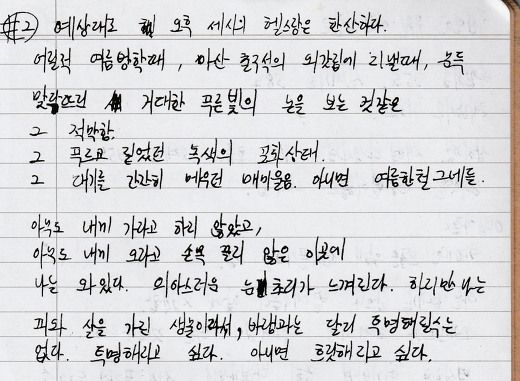 #2) 예상대로 오후 세시의 헬스장은 한산하다.
어릴적 여름방학때, 마산 출국석의 외갓집에 지낼때, 문득
맞닥뜨린 거대한 푸른빛의 논을 보는 것같은
그 적막함.
그 푸르고 길었던 녹색의 포화상태.
그 대기를 간간히 메우던 매미울음. 아니면 여름한철 그네들.
아무도 내게 가라고 하지 않았고,
아무도 내게 오라고 손짓 하지 않은 이곳에
나는 와있다. 의아스러운 눈초리가 느껴진다. 하지만 나는
피와 살을 가진 생물이라서, 바램과는 달리 투명해질수는
없다. 투명해지고 싶다. 아니면 흐릿해지고 싶다.